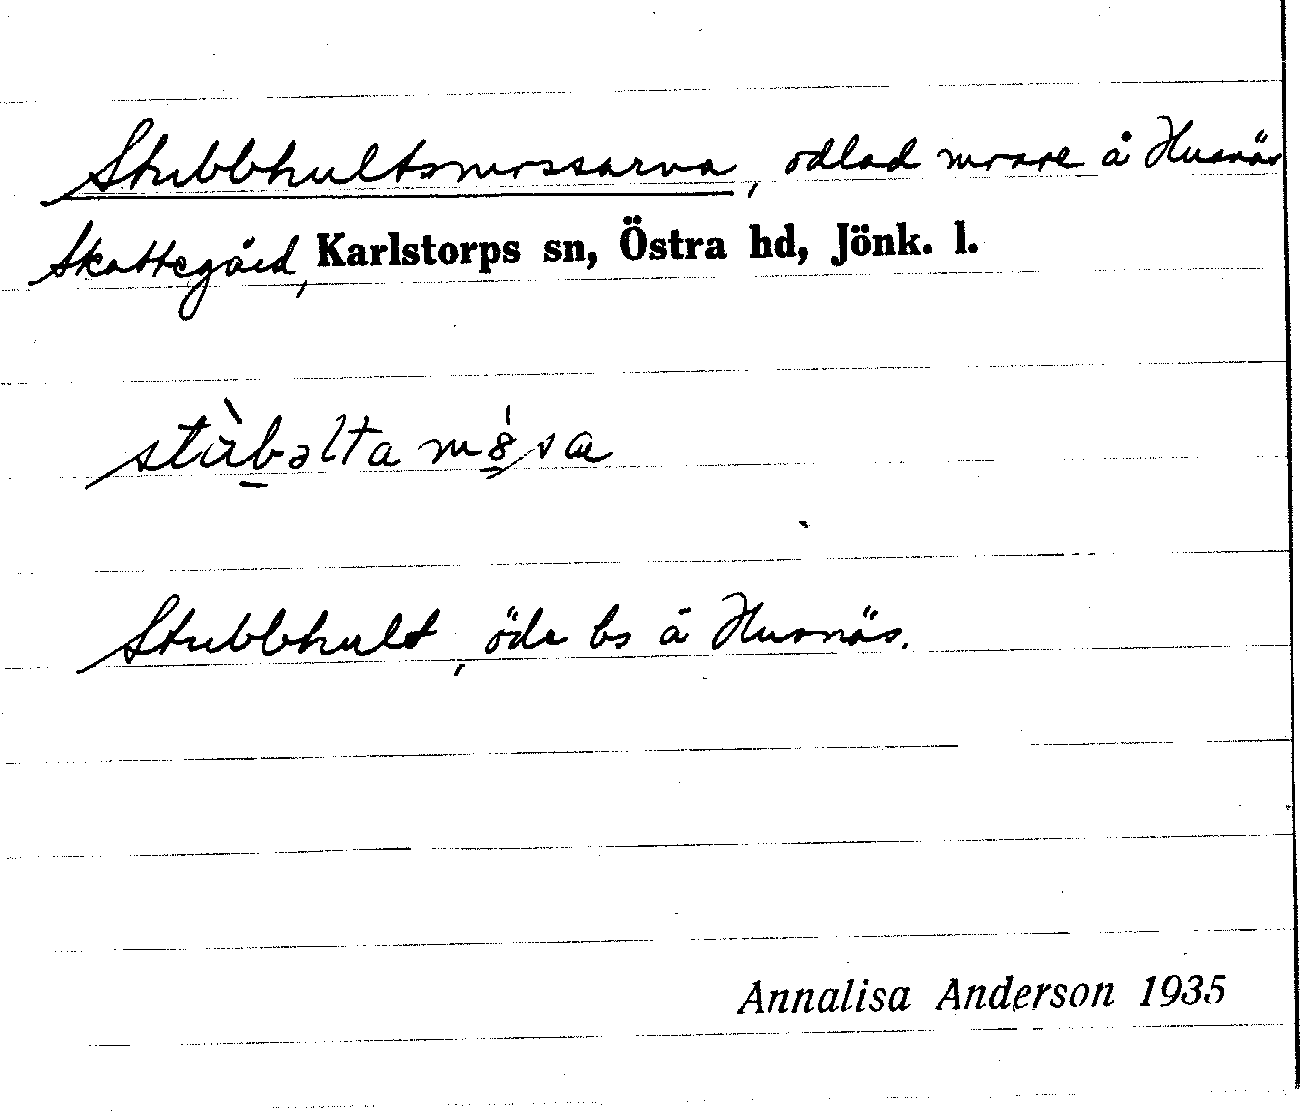 Stubbhultsmossarna, odlad mosse å Husnäs
Skattegård, Karlstorps sn, Östra hd, Jönk. l.
stùbəlta m8̀sa
Stubbhult, öde bs å Husnäs.
Annalisa Anderson 1935